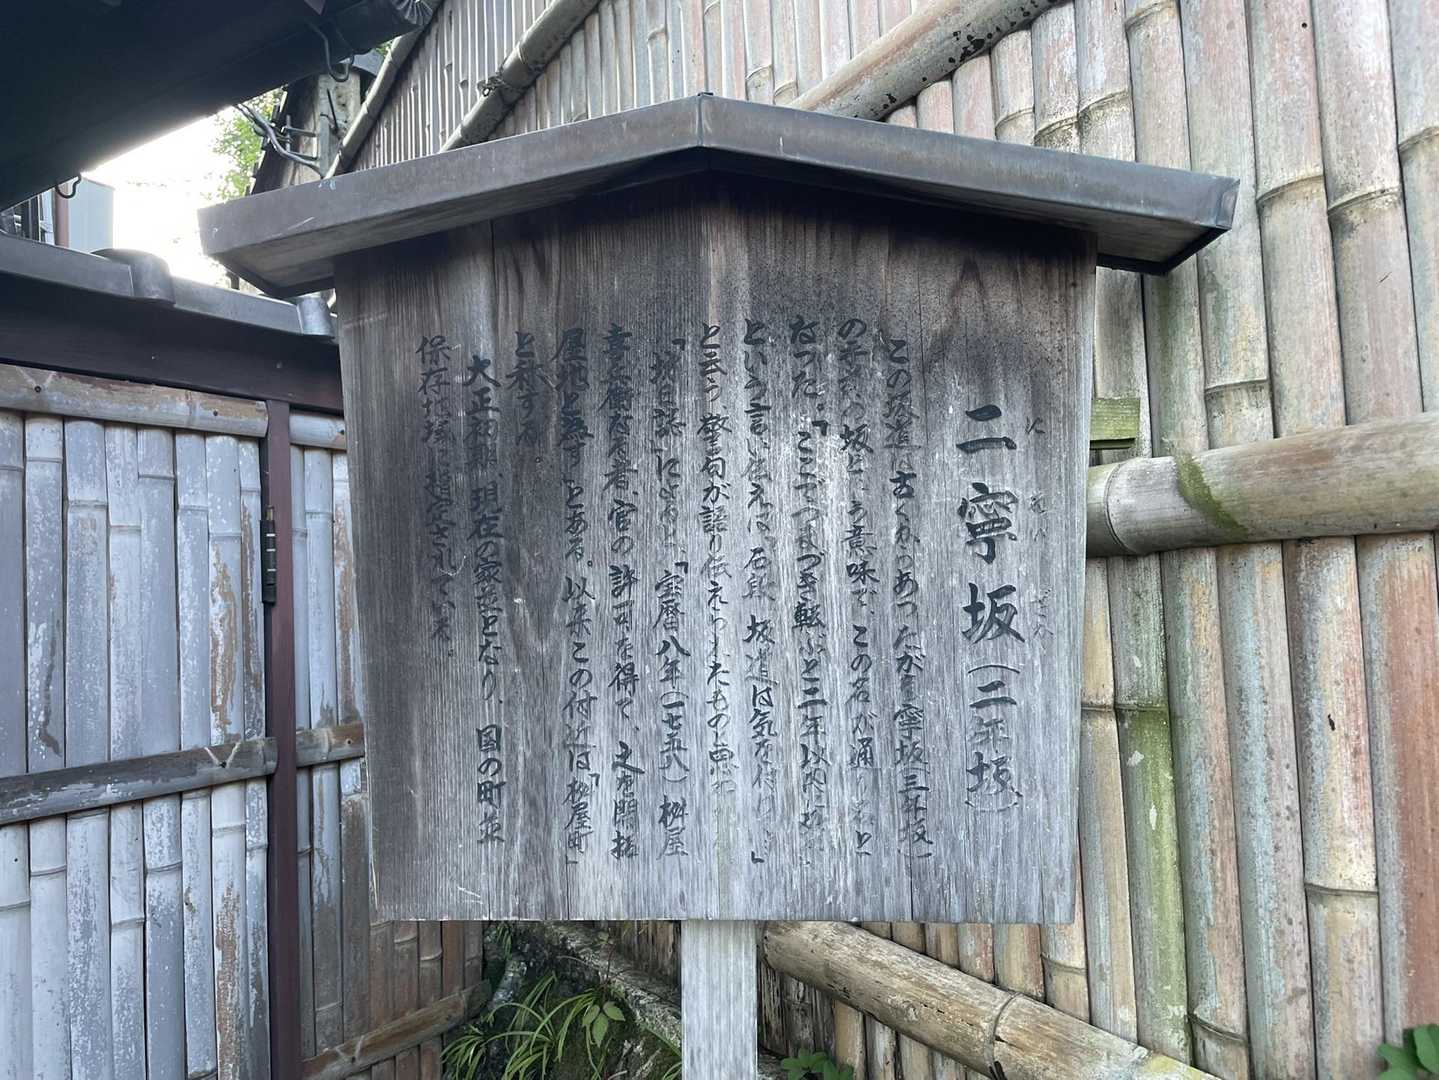 に ねん ざか
二寧坂(二年坂)
この坂道は古くからあったが、寧坂(三年坂)
の手まえの坂という意味で、この名が通り名と
なった。「ここでつまづき転ぶと二年以内に
という言い伝えは、石段、坂道は気を付け」
と云う警句が語り伝えられたものと思
「坊目誌」によると、「宝暦八年(一七五八)桝屋
喜兵衛なる者、官の許可を得て、之を開拓
屋地と為す」とある。以来この付近は「桝屋町」
と称する。
大正初期、現在の家並となり、国の町並
保存地域に指定されている。